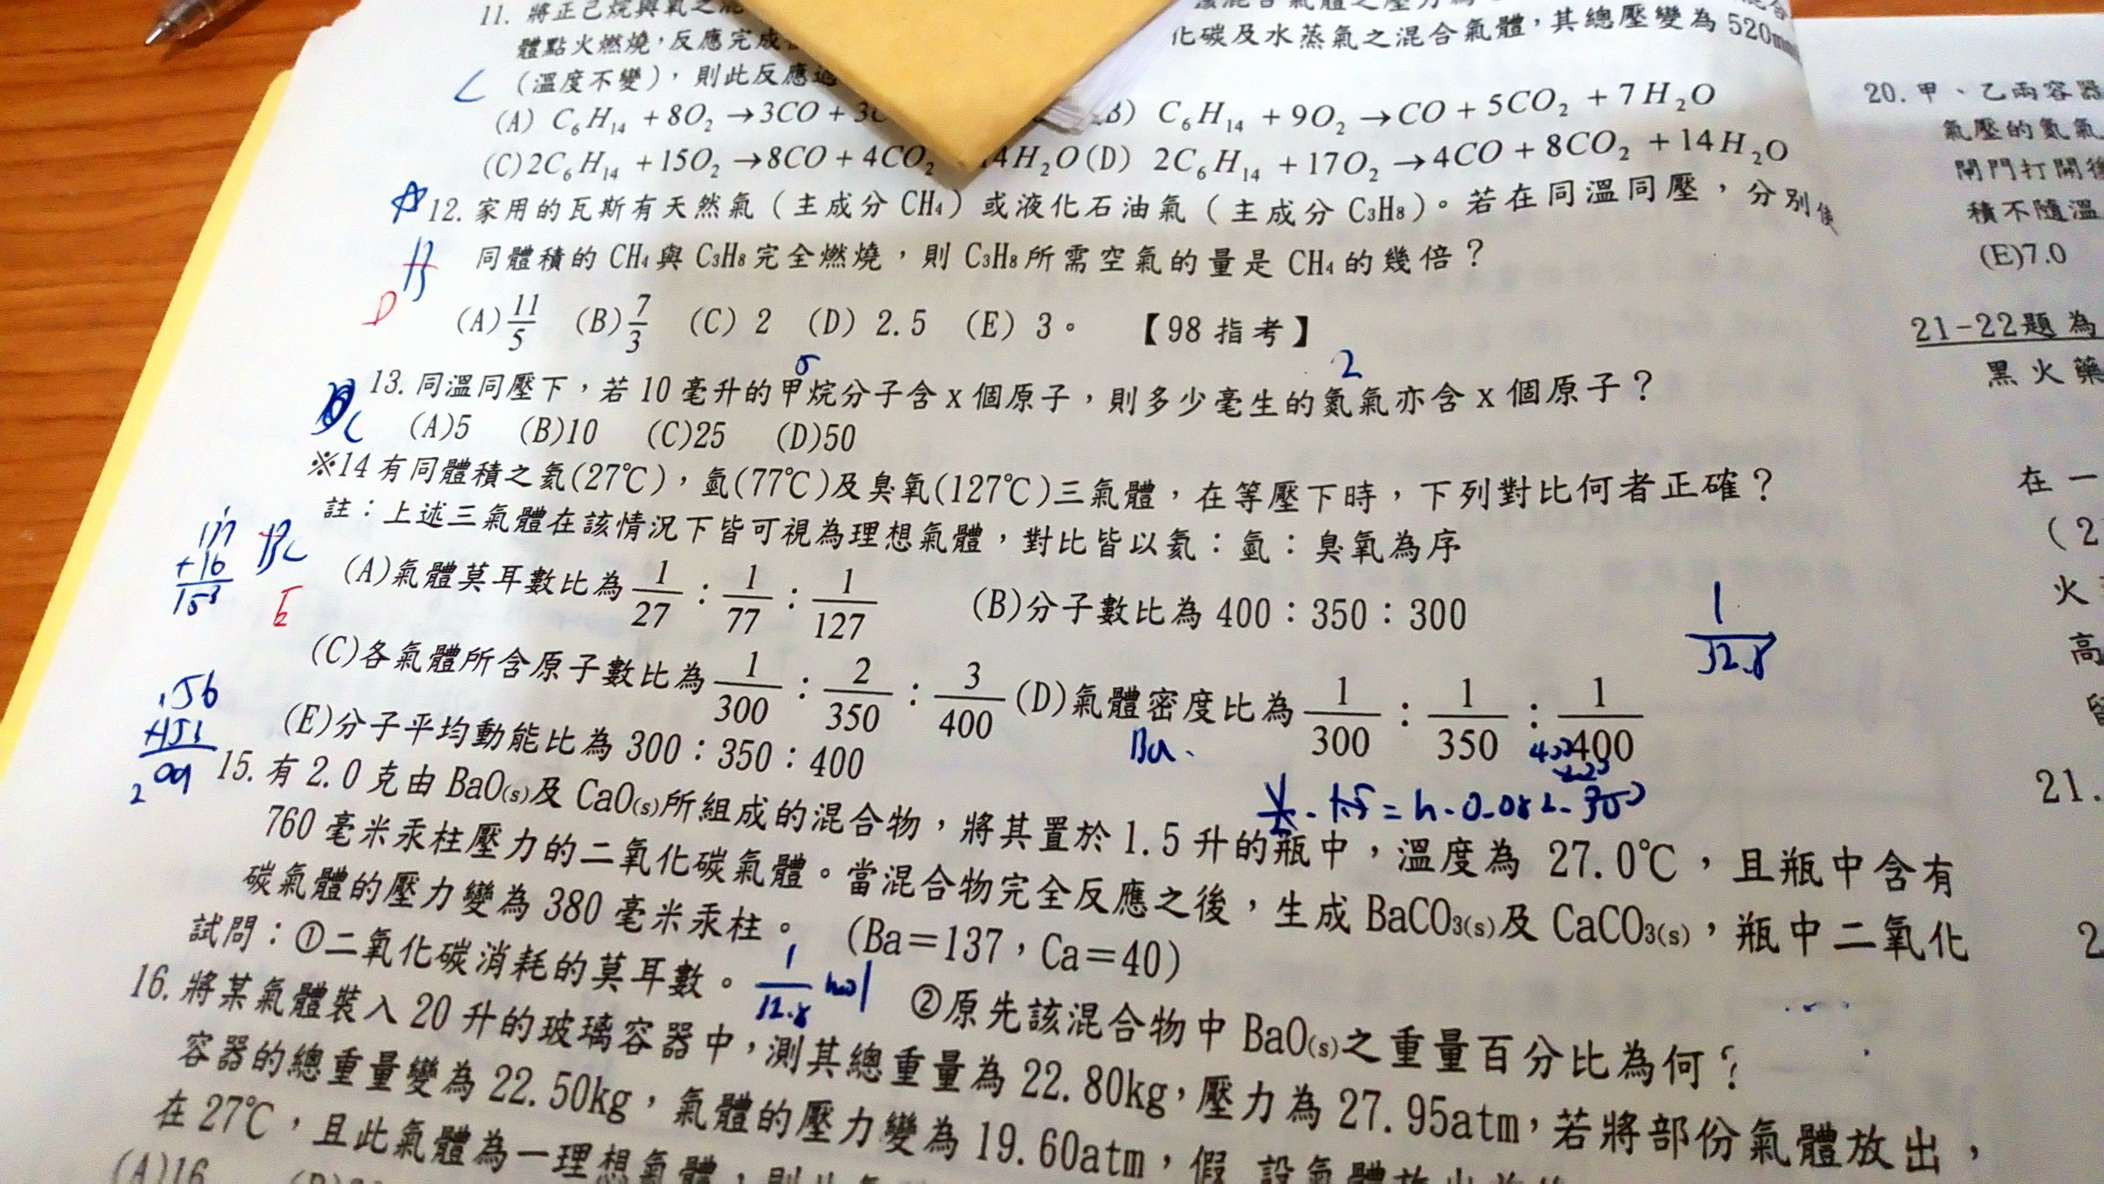 11. 將正己烷與氧之混
體點火燃燒，反應完成
(溫度不變)，則此反應
化碳及水蒸氣之混合氣體，其總壓變為520mm
(A) C₆H₁₄ + 8O₂ → 3CO + 3C
B) C₆H₁₄ + 9O₂ → CO + 5CO₂ + 7H₂O
(C) 2C₆H₁₄ + 15O₂ → 8CO + 4CO₂ 4H₂O (D) 2C₆H₁₄ + 17O₂ → 4CO + 8CO₂ + 14H₂O
12. 家用的瓦斯有天然氣（主成分CH₄）或液化石油氣（主成分C₃H₈）。若在同溫同壓，分別使
同體積的CH₄與C₃H₈完全燃燒，則C₃H₈所需空氣的量是CH₄的幾倍？
D
(A) 11/5 (B) 7/3 (C) 2 (D) 2.5 (E) 3。 【98指考】
5 2
13. 同溫同壓下，若10毫升的甲烷分子含x個原子，則多少毫生的氮氣亦含x個原子？
C (A)5 (B)10 (C)25 (D)50
※14 有同體積之氦(27℃)，氫(77℃)及臭氧(127℃)三氣體，在等壓下時，下列對比何者正確？
註：上述三氣體在該情況下皆可視為理想氣體，對比皆以氦：氫：臭氧為序
137
+16
153
E
(A)氣體莫耳數比為 1/27 : 1/77 : 1/127 (B)分子數比為400：350：300
1/12.8
(C)各氣體所含原子數比為 1/300 : 2/350 : 3/400 (D)氣體密度比為 1/300 : 1/350 : 1/400
(E)分子平均動能比為300：350：400
56
+153
209
Ba
15. 有2.0克由BaO(s)及CaO(s)所組成的混合物，將其置於1.5升的瓶中，溫度為27.0℃，且瓶中含有
1.5 = n · 0.082 · 300
760毫米汞柱壓力的二氧化碳氣體。當混合物完全反應之後，生成BaCO₃(s)及CaCO₃(s)，瓶中二氧化
碳氣體的壓力變為380毫米汞柱。 (Ba＝137，Ca＝40)
試問：①二氧化碳消耗的莫耳數。 1/12.8 mol ②原先該混合物中BaO(s)之重量百分比為何？
16. 將某氣體裝入20升的玻璃容器中，測其總重量為22.80kg，壓力為27.95atm，若將部份氣體放出，
容器的總重量變為22.50kg，氣體的壓力變為19.60atm，假設氣體放出前後
在27℃，且此氣體為一理想氣體，則此氣
(A)16
20. 甲、乙兩容器
氣壓的氦氣
閘門打開後
積不隨溫
(E)7.0
21-22題為
黑火藥
在一
(2
火
高
21.
2